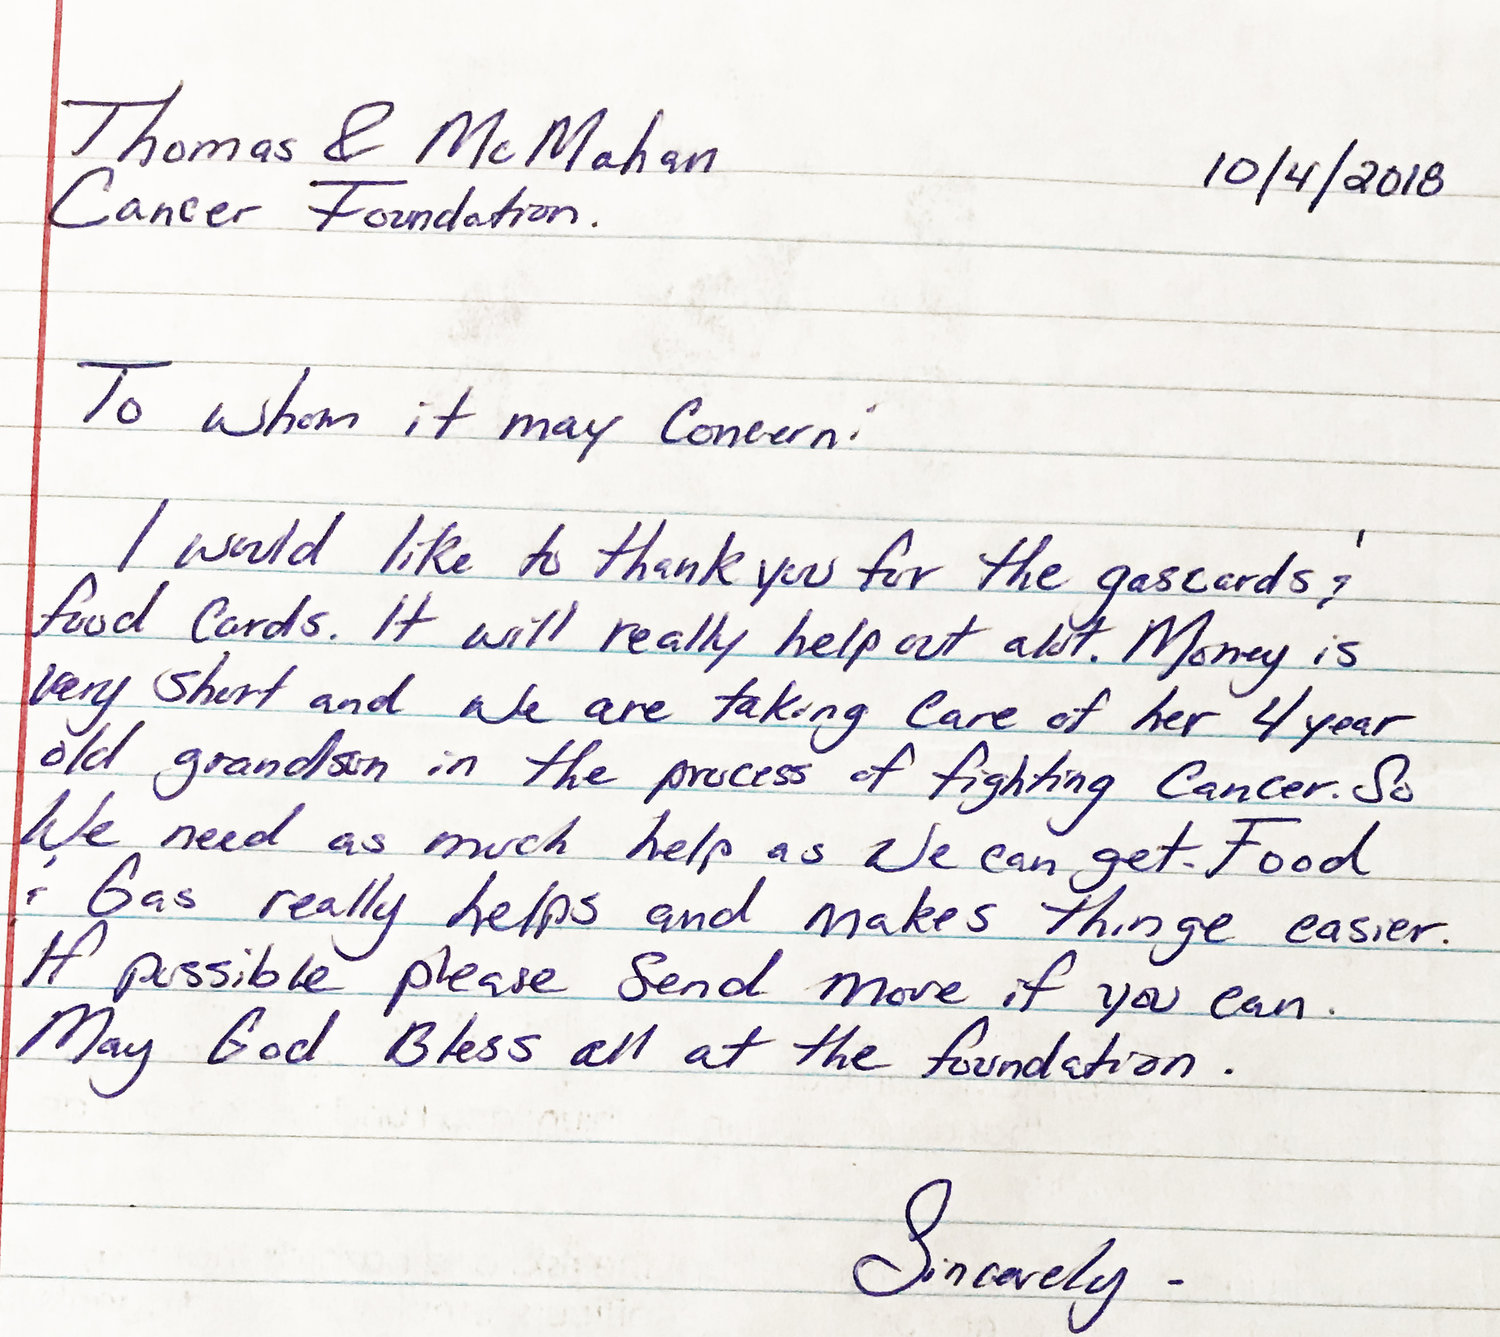 Thomas & McMahan
10/4/2018
Cancer Foundation.
To whom it may Concern:
I would like to thank you for the gascards &
food Cards. It will really help out alot. Money is
very short and we are taking Care of her 4 year
old grandson in the process of fighting Cancer. So
We need as much help as We can get. Food
& Gas really helps and makes thinge easier.
If possible please Send more if you can.
May God Bless all at the foundation.
Sincerely -